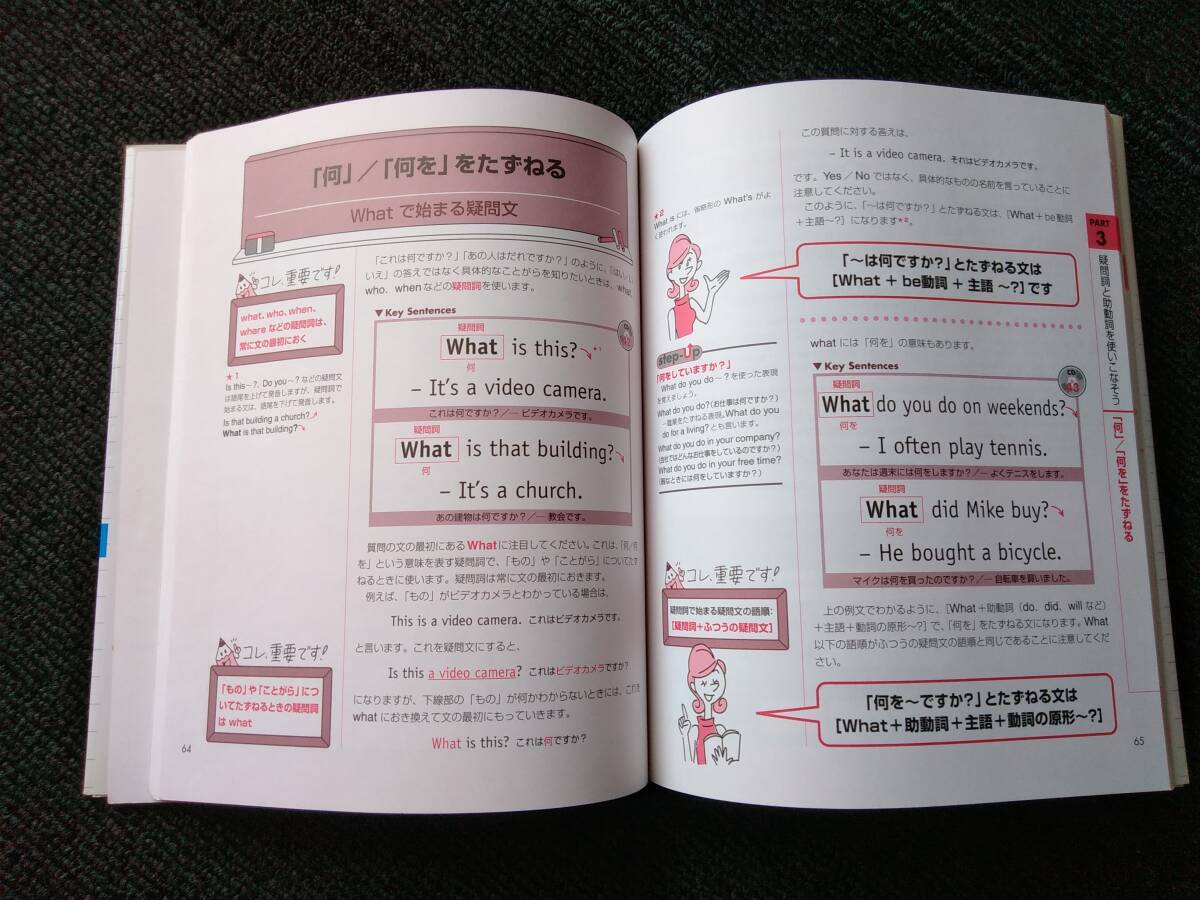 「何」／「何を」をたずねる
What で始まる疑問文
コレ、重要です!
what、who、when、
where などの疑問詞は、
常に文の最初におく
★1
Is this～?、Do you～? などの疑問文
は語尾を上げて発音しますが、疑問詞で
始まる文は、語尾を下げて発音します。
Is that building a church?
What is that building?
「これは何ですか?」「あの人はだれですか?」のように、「はい/いい
え」の答えではなく具体的なことがらを知りたいときは、what、
who、whenなどの疑問詞を使います。
▼Key Sentences
CD
疑問詞
What is this? *1
何
– It's a video camera.
これは何ですか？／― ビデオカメラです。
疑問詞
What is that building?
何
– It's a church.
あの建物は何ですか？／― 教会です。
質問の文の最初にあるWhatに注目してください。これは、「何／何
を」という意味を表す疑問詞で、「もの」や「ことがら」についてたず
ねるときに使います。疑問詞は常に文の最初におきます。
例えば、「もの」がビデオカメラとわかっている場合は、
This is a video camera. これはビデオカメラです。
と言います。これを疑問文にすると、
Is this a video camera? これはビデオカメラですか?
になりますが、下線部の「もの」が何かわからないときには、これを
whatにおき換えて文の最初にもっていきます。
What is this? これは何ですか?
コレ、重要です!
「もの」や「ことがら」につ
いてたずねるときの疑問詞
は what
64
この質問に対する答えは、
– It is a video camera. それはビデオカメラです。
です。Yes／No ではなく、具体的なものの名前を言っていることに
注意してください。
このように、「～は何ですか?」とたずねる文は、[What＋be動詞
＋主語～?] になります★2。
★2
What is には、省略形の What's がよ
く使われます。
「～は何ですか?」とたずねる文は
[What ＋ be動詞 ＋ 主語 ～?] です
what には「何を」の意味もあります。
▼Key Sentences
CD
43
疑問詞
What do you do on weekends?
何を
– I often play tennis.
あなたは週末には何をしますか？／― よくテニスをします。
疑問詞
What did Mike buy?
何を
– He bought a bicycle.
マイクは何を買ったのですか？／― 自転車を買いました。
step-Up
「何をしていますか?」
What do you do～? を使った表現
を覚えましょう。
What do you do?（お仕事は何ですか?）
―職業をたずねる表現。What do you
do for a living? とも言います。
What do you do in your company?
（会社ではどんなお仕事をしているのですか?）
What do you do in your free time?
（暇なときには何をしていますか?）
コレ、重要です!
疑問詞で始まる疑問文の語順：
[疑問詞＋ふつうの疑問文]
上の例文でわかるように、[What＋助動詞（do、did、willなど）
＋主語＋動詞の原形～?] で、「何を」をたずねる文になります。What
以下の語順がふつうの疑問文の語順と同じであることに注意してくだ
さい。
「何を～ですか?」とたずねる文は
[What＋助動詞＋主語＋動詞の原形～?]
65
PART
3
疑問詞と助動詞を使いこなそう
「何」／「何を」をたずねる